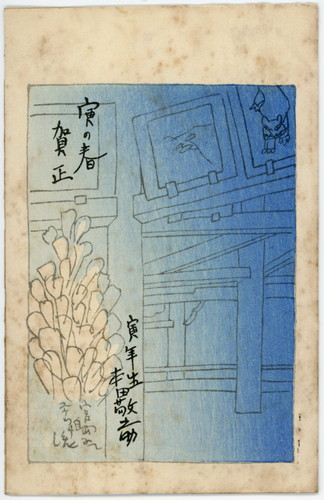 寅の春
賀正
寅年生
本田敬之助